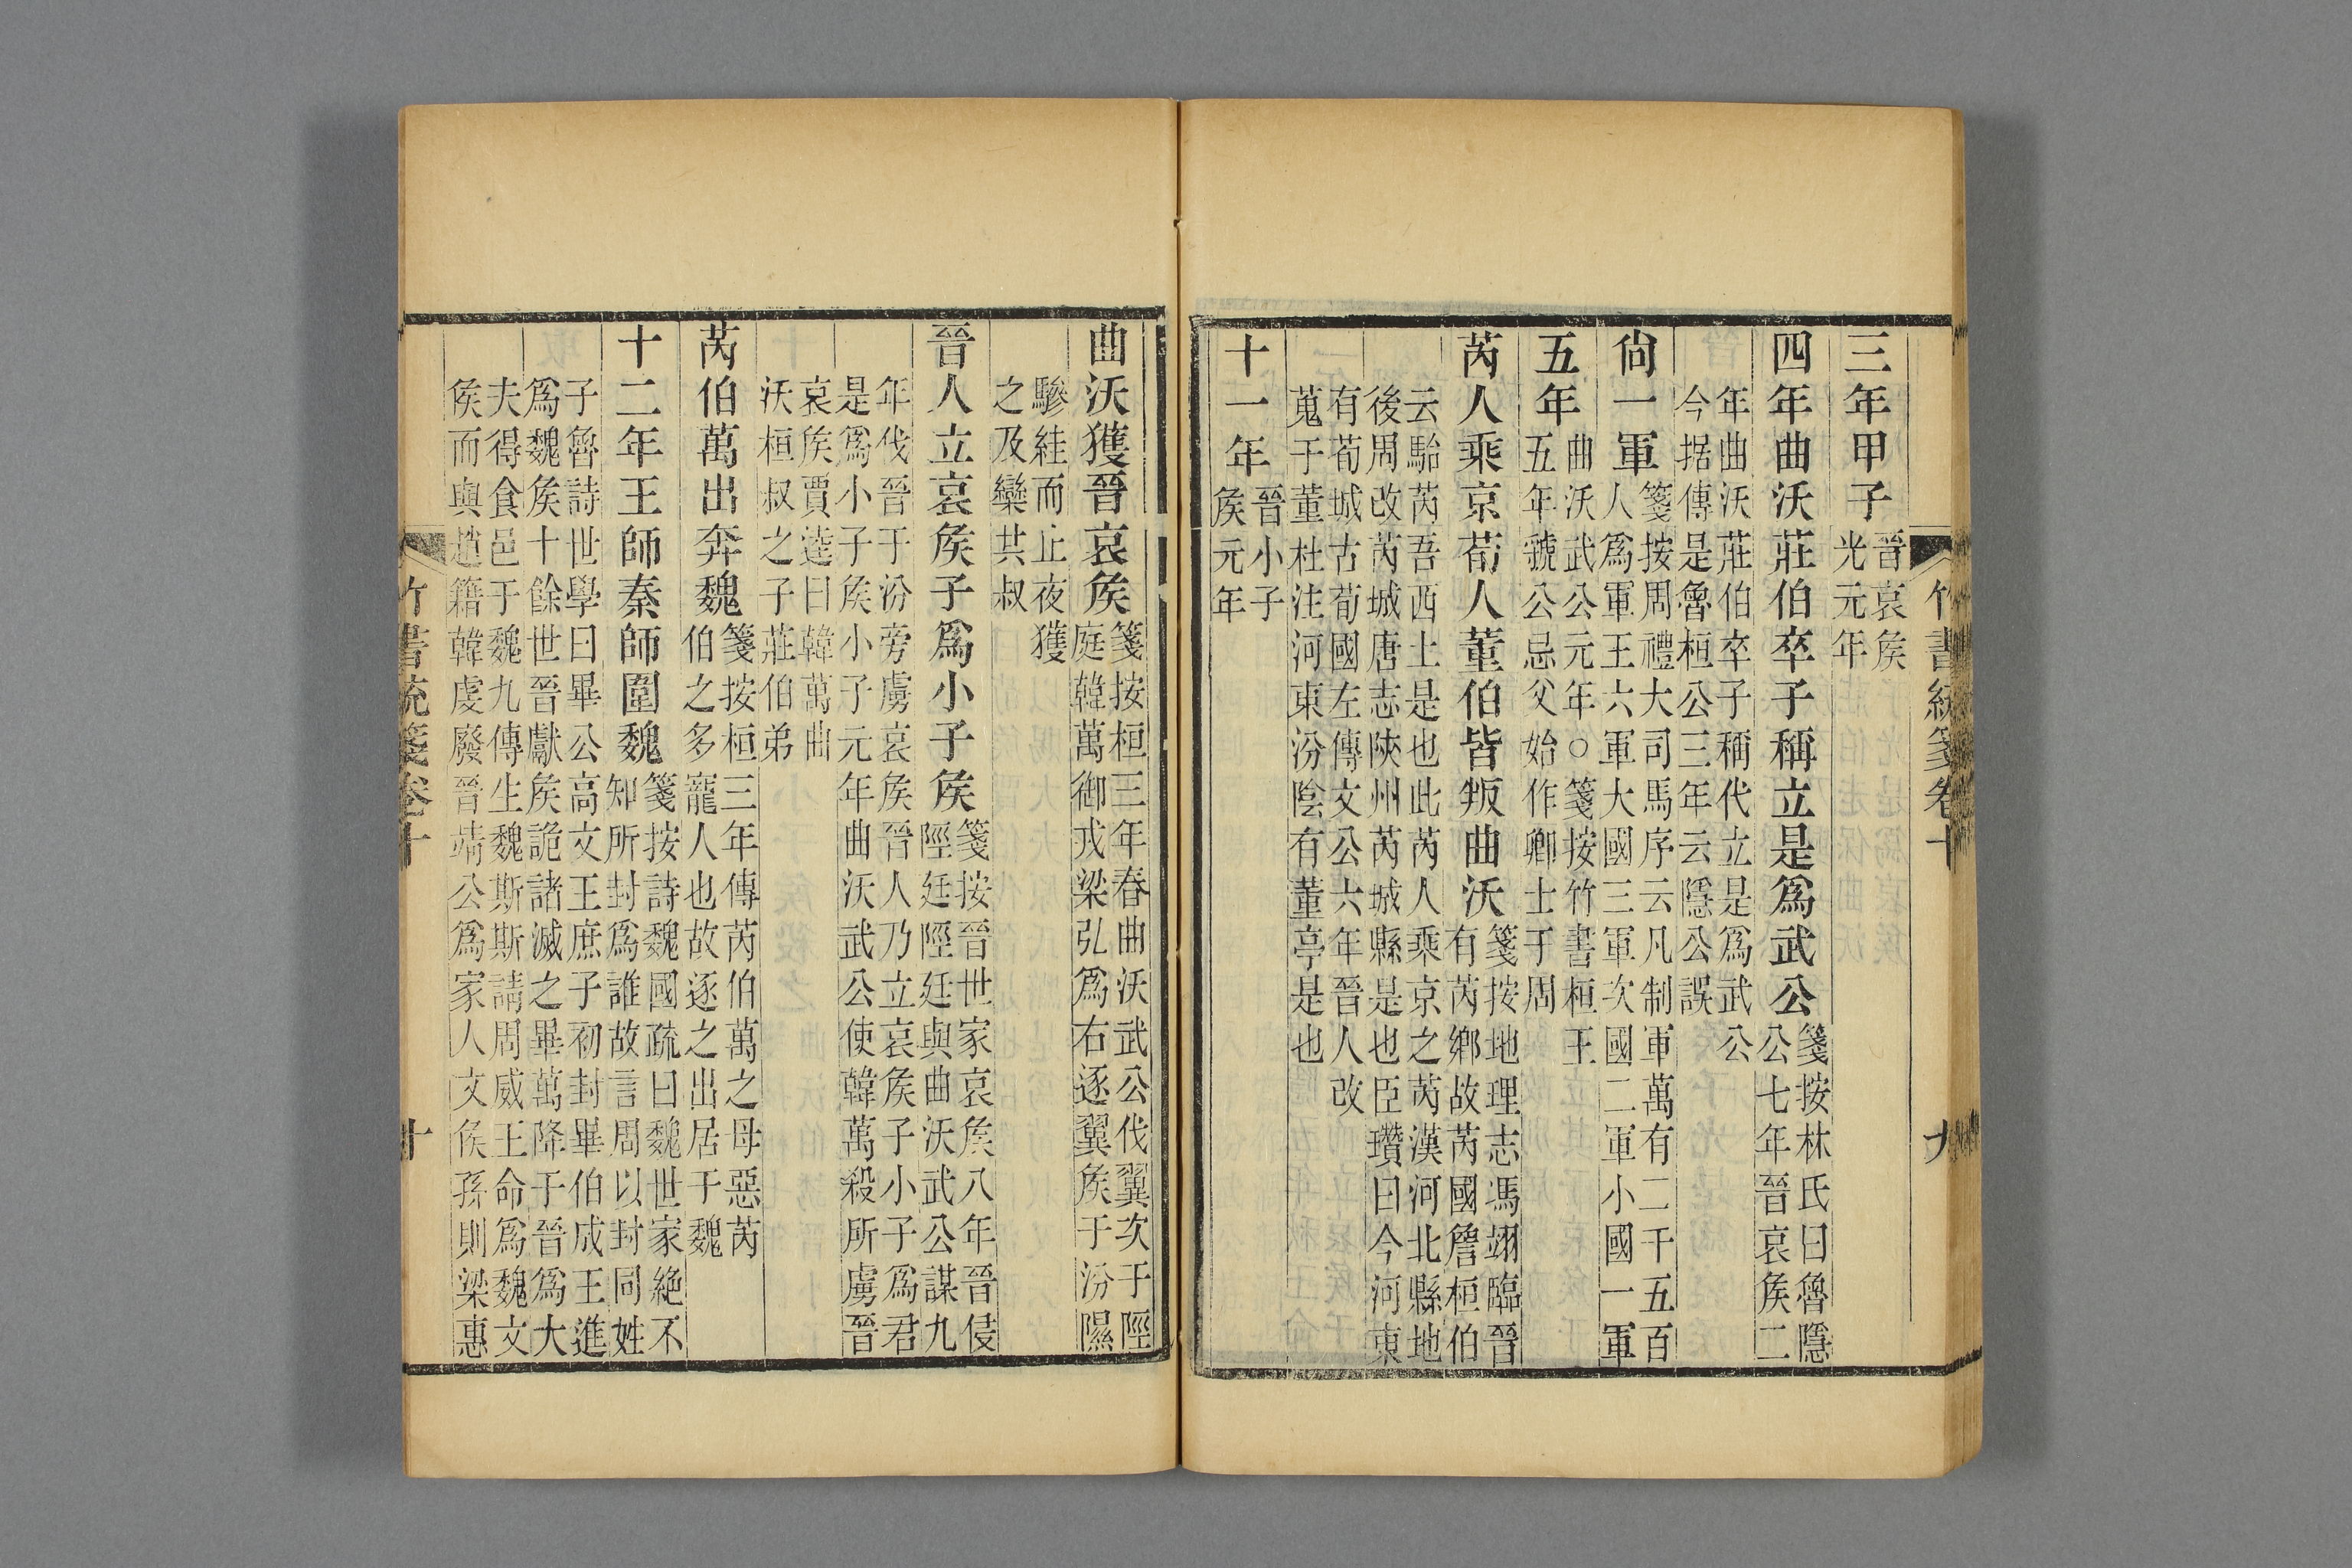 竹書統箋卷十 九
三年甲子
晉哀矦
光元年
四年曲沃莊伯卒子稱立是爲武公
箋按林氏曰魯隱
公七年晉哀矦二
年曲沃莊伯卒子稱代立是爲武公
今据傳是魯桓公三年云隱公誤
尙一軍
箋按周禮大司馬序云凡制軍萬有二千五百
人爲軍王六軍大國三軍次國二軍小國一軍
五年
曲沃武公元年○箋按竹書桓王
五年虢公忌父始作卿士于周
芮人乘京荀人董伯皆叛曲沃
箋按地理志馮翊臨晉
有芮鄉故芮國詹桓伯
云駘芮吾西土是也此芮人乘京之芮漢河北縣地
後周改芮城唐志陝州芮城縣是也臣瓚曰今河東
有荀城古荀國左傳文公六年晉人改
蒐于董杜注河東汾陰有董亭是也
十一年
晉小子
矦元年
曲沃獲晉哀矦
箋按桓三年春曲沃武公伐翼次于陘
庭韓萬御戎梁弘爲右逐翼矦于汾隰
驂絓而止夜獲
之及欒共叔
晉人立哀矦子爲小子矦
箋按晉世家哀矦八年晉侵
陘廷陘廷與曲沃武公謀九
年伐晉于汾旁虜哀矦晉人乃立哀矦子小子爲君
是爲小子矦小子元年曲沃武公使韓萬殺所虜晉
哀矦賈逵曰韓萬曲
沃桓叔之子莊伯弟
芮伯萬出奔魏
箋按桓三年傳芮伯萬之母惡芮
伯之多寵人也故逐之出居于魏
十二年王師秦師圍魏
箋按詩魏國疏曰魏世家絶不
知所封爲誰故言周以封同姓
子魯詩世學曰畢公高文王庶子初封畢伯成王進
爲魏矦十餘世晉獻矦詭諸滅之畢萬降于晉爲大
夫得食邑于魏九傳生魏斯斯請周威王命爲魏文
侯而與趙籍韓虔廢晉靖公爲家人文侯孫則梁惠
竹書統箋卷十 十